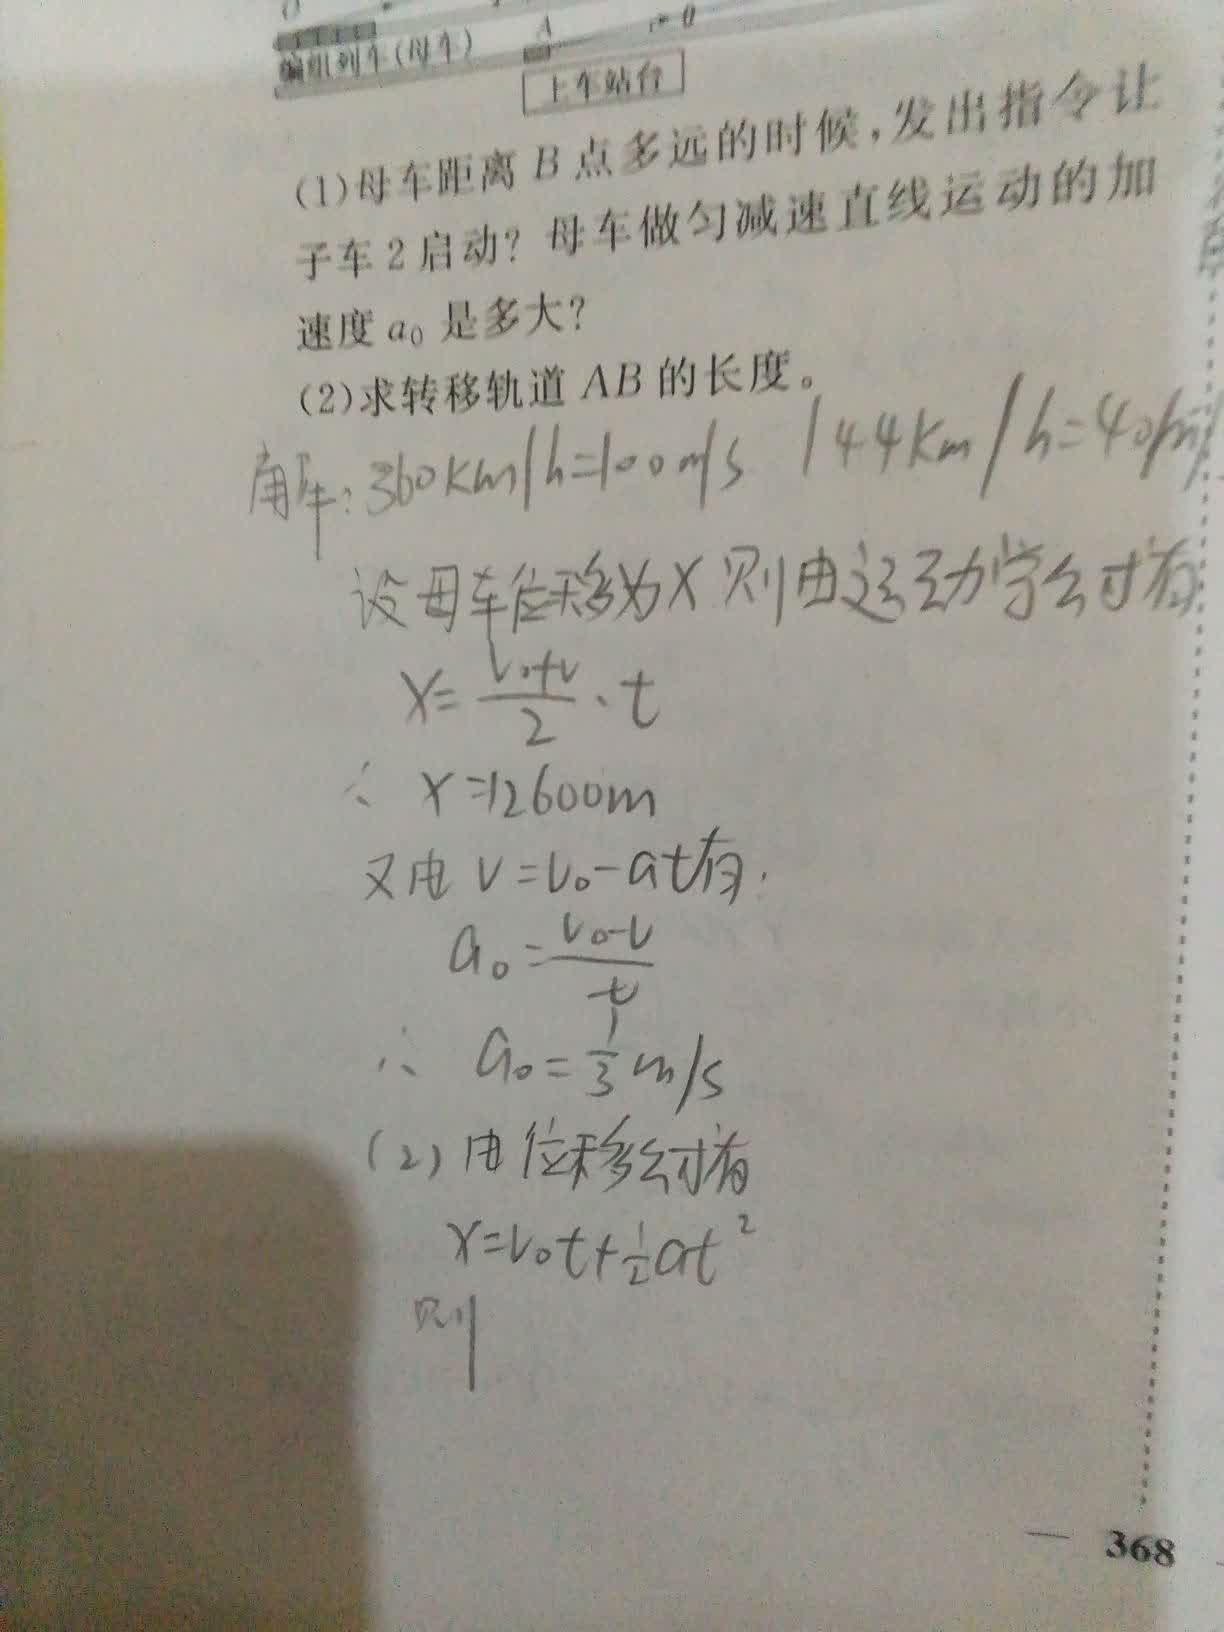 编组列车(母车)
A
B
上车站台
(1)母车距离B点多远的时候,发出指令让
子车2启动?母车做匀减速直线运动的加
速度a₀是多大?
(2)求转移轨道AB的长度。
解:360km/h=100m/s 144km/h=40m/
设母车位移为X则由运动学公式有
X=\frac{v₀+v}{2}·t
∴ X=12600m
又由 v=v₀-at有.
a₀=\frac{v₀-v}{t}
∴ a₀=\frac{1}{3}m/s
(2)由位移公式有
X=v₀t+\frac{1}{2}at²
则
368